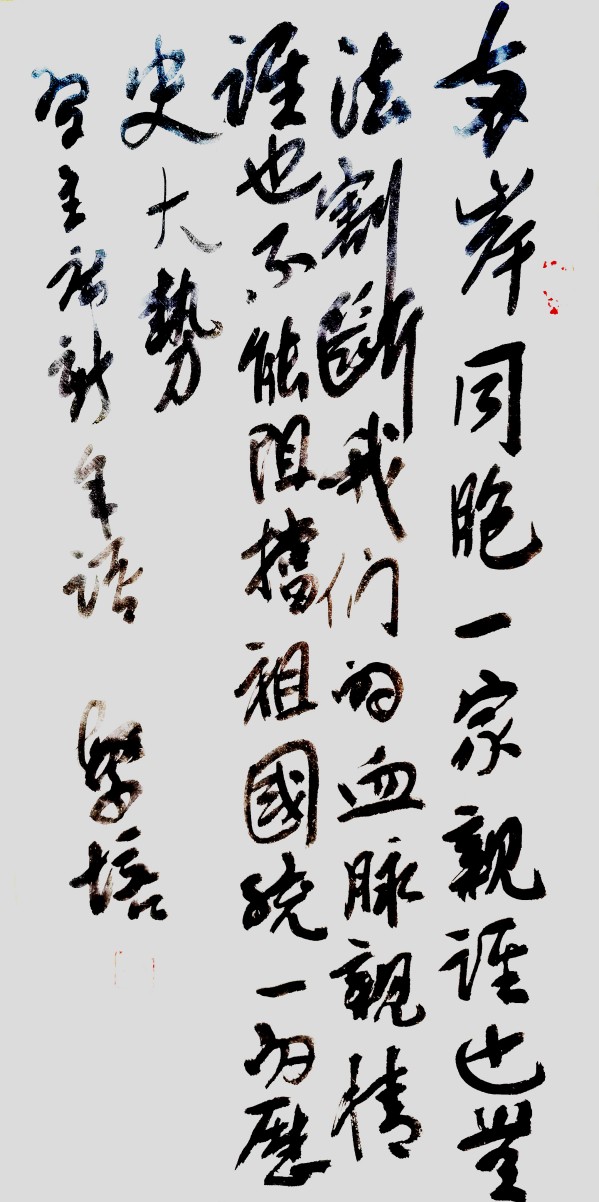 两岸同胞一家親誰也無
法割斷我们的血脉親情
誰也不能阻擋祖國统一的歷
史大勢
習主席新年話
學培